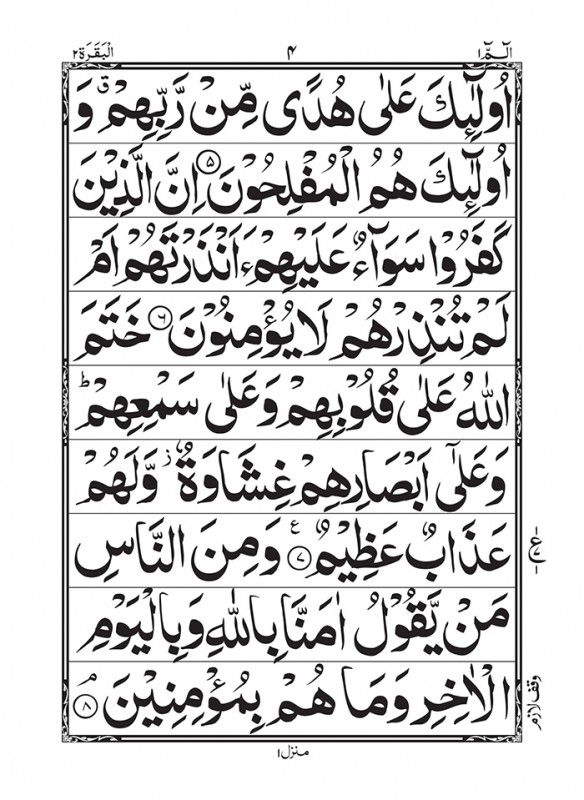 الٓمّٓ ١ ۴ الْبَقَرَة ٢
اُولٰٓئِكَ عَلٰى هُدًى مِّنْ رَّبِّهِمْ ۗ وَ
اُولٰٓئِكَ هُمُ الْمُفْلِحُوْنَ ۝۵ اِنَّ الَّذِيْنَ
كَفَرُوْا سَوَآءٌ عَلَيْهِمْ ءَاَنْذَرْتَهُمْ اَمْ
لَمْ تُنْذِرْهُمْ لَا يُؤْمِنُوْنَ ۝۶ خَتَمَ
اللّٰهُ عَلٰى قُلُوْبِهِمْ وَعَلٰى سَمْعِهِمْ ؕ
وَعَلٰٓى اَبْصَارِهِمْ غِشَاوَةٌ ز وَّلَهُمْ
عَذَابٌ عَظِيْمٌ ۝۷ ع وَمِنَ النَّاسِ
ع
مَنْ يَّقُوْلُ اٰمَنَّا بِاللّٰهِ وَبِالْيَوْمِ
الْاٰخِرِ وَمَا هُمْ بِمُؤْمِنِيْنَ ۝۸ۘ
وقف لازم
منزل ١